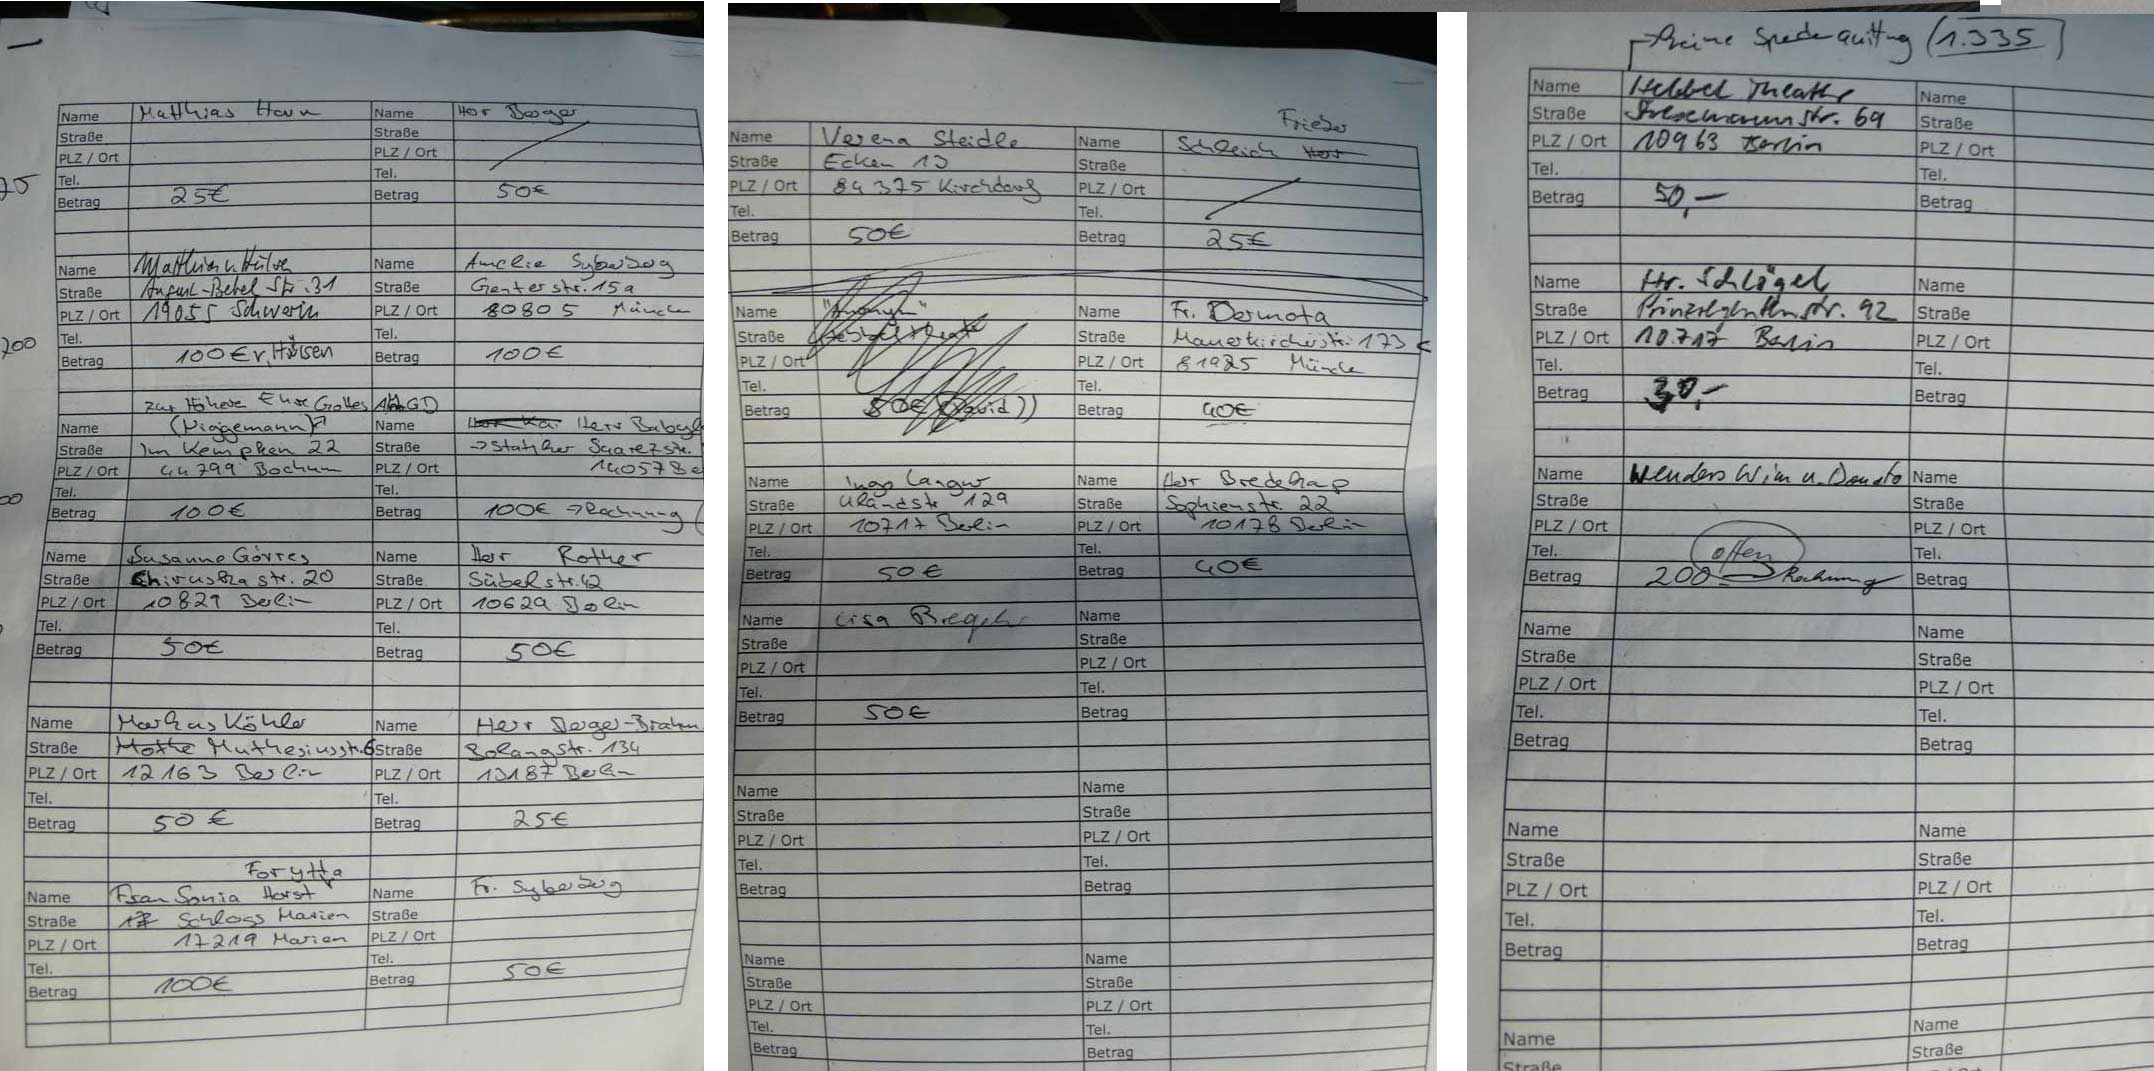 75
Name Matthias Horn Name Herr Berger
Straße Straße
PLZ / Ort PLZ / Ort
Tel. Tel.
Betrag 25€ Betrag 50€
Name Matthias v. Hülsen Name Amelie Syberberg
Straße August-Bebel Str. 31 Straße Genterstr. 15a
PLZ / Ort 19055 Schwerin PLZ / Ort 80805 München
Tel. Tel.
200
Betrag 100€ v. Hülsen Betrag 100€
zur Höhere Ehre Gottes
Name (Niggemann) Name Herr
Straße Im Kemphen 22 Straße
PLZ / Ort 44799 Bochum PLZ / Ort 14057 Be
Tel. Tel.
Betrag 100€ Betrag 100€ → Rechnung (
Name Susanne Görres Name Herr Rother
Straße str. 20 Straße Sübelstr. 42
PLZ / Ort 10829 Berlin PLZ / Ort 10629 Berlin
Tel. Tel.
Betrag 50€ Betrag 50€
Name Markus Köhler Name Herr
Straße Muthesiusstr. 6 Straße str. 134
PLZ / Ort 12163 Berlin PLZ / Ort 13187 Berlin
Tel. Tel.
Betrag 50€ Betrag 25€
Forytta
Name Frau Sonja Horst Name Fr. Syberberg
Straße Schloss Marien Straße
PLZ / Ort 17219 Marien PLZ / Ort
Tel. Tel.
Betrag 100€ Betrag 50€
Frieder
Name Verena Steidle Name Schleich Herr
Straße Ecken 13 Straße
PLZ / Ort 84375 Kirchdorf PLZ / Ort
Tel. Tel.
Betrag 50€ Betrag 25€
Name Name Fr. Dermota
Straße Straße Mauerkircherstr. 173
PLZ / Ort PLZ / Ort 81925 München
Tel. Tel.
Betrag 50€ (David)) Betrag 40€
Name Ingo Langner Name Herr
Straße Ulandstr 129 Straße Sophienstr. 22
PLZ / Ort 10717 Berlin PLZ / Ort 10178 Berlin
Tel. Tel.
Betrag 50€ Betrag 40€
Name Lisa Name
Straße Straße
PLZ / Ort PLZ / Ort
Tel. Tel.
Betrag 50€ Betrag
Name Name
Straße Straße
PLZ / Ort PLZ / Ort
Tel. Tel.
Betrag Betrag
Name Name
Straße Straße
PLZ / Ort PLZ / Ort
Tel. Tel.
Betrag Betrag
(1.335)
Name Hebbel Theater Name
Straße Stresemannstr. 69 Straße
PLZ / Ort 10963 Berlin PLZ / Ort
Tel. Tel.
Betrag 50,- Betrag
Name Hr. Schlögel Name
Straße Prinzregentenstr. 92 Straße
PLZ / Ort 10717 Berlin PLZ / Ort
Tel. Tel.
Betrag 30,- Betrag
Name Wenders Wim u. Donata Name
Straße Straße
PLZ / Ort PLZ / Ort
Tel. offen Tel.
Betrag 200 Rechnung Betrag
Name Name
Straße Straße
PLZ / Ort PLZ / Ort
Tel. Tel.
Betrag Betrag
Name Name
Straße Straße
PLZ / Ort PLZ / Ort
Tel. Tel.
Betrag Betrag
Name Name
Straße Straße